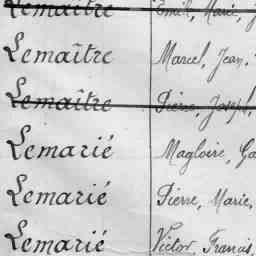 Lemaître Émile, Marie, J
Lemaître Marcel, Jean,
Lemaître Pierre, Joseph,
Lemarié Magloire, Ga
Lemarié Pierre, Marie,
Lemarié Victor, Francis,